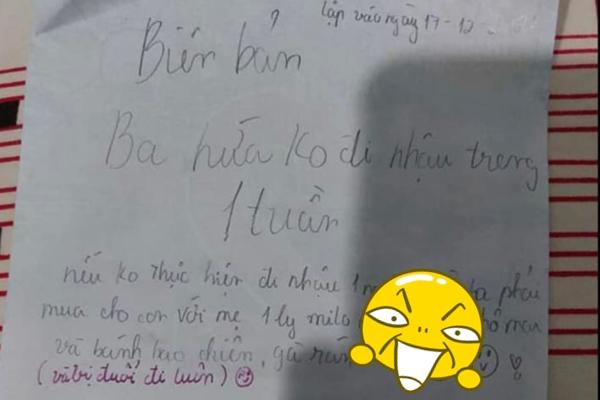 lập vào ngày 17-12
Biên bản
Ba hứa ko đi nhậu trong
1 tuần
nếu ko thực hiện đi nhậu 1 ba phải
mua cho con với mẹ 1 ly milo
và bánh bao chiên, gà rán
(và bị đuổi đi luôn)